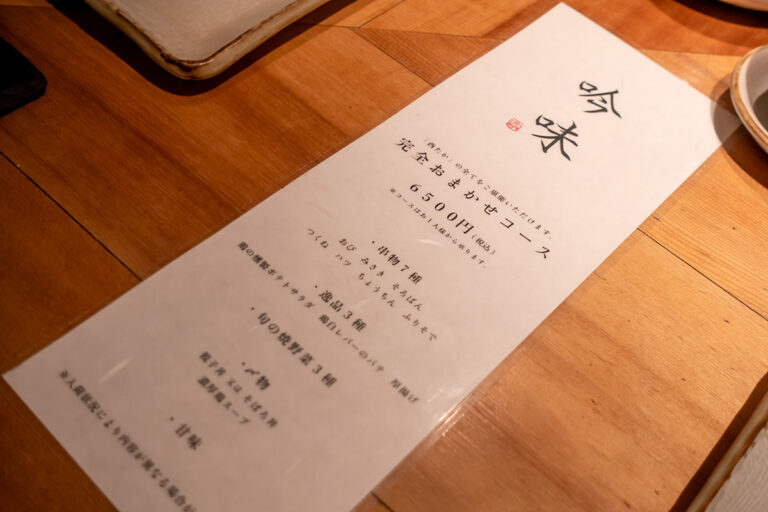 吟味
「酉たか」の全てをご堪能いただけます。
完全おまかせコース
6500円(税込)
※コースはお1人様から承ります。
・串物7種
おび みさき そろばん
つくね ハツ ちょうちん ふりそで
・逸品3種
鶏の燻製ポテトサラダ 鶏白レバーのパテ 厚揚げ
・旬の焼野菜3種
・〆物
親子丼 又は そぼろ丼
濃厚鶏スープ
・甘味
※入荷状況により内容が異なる場合が